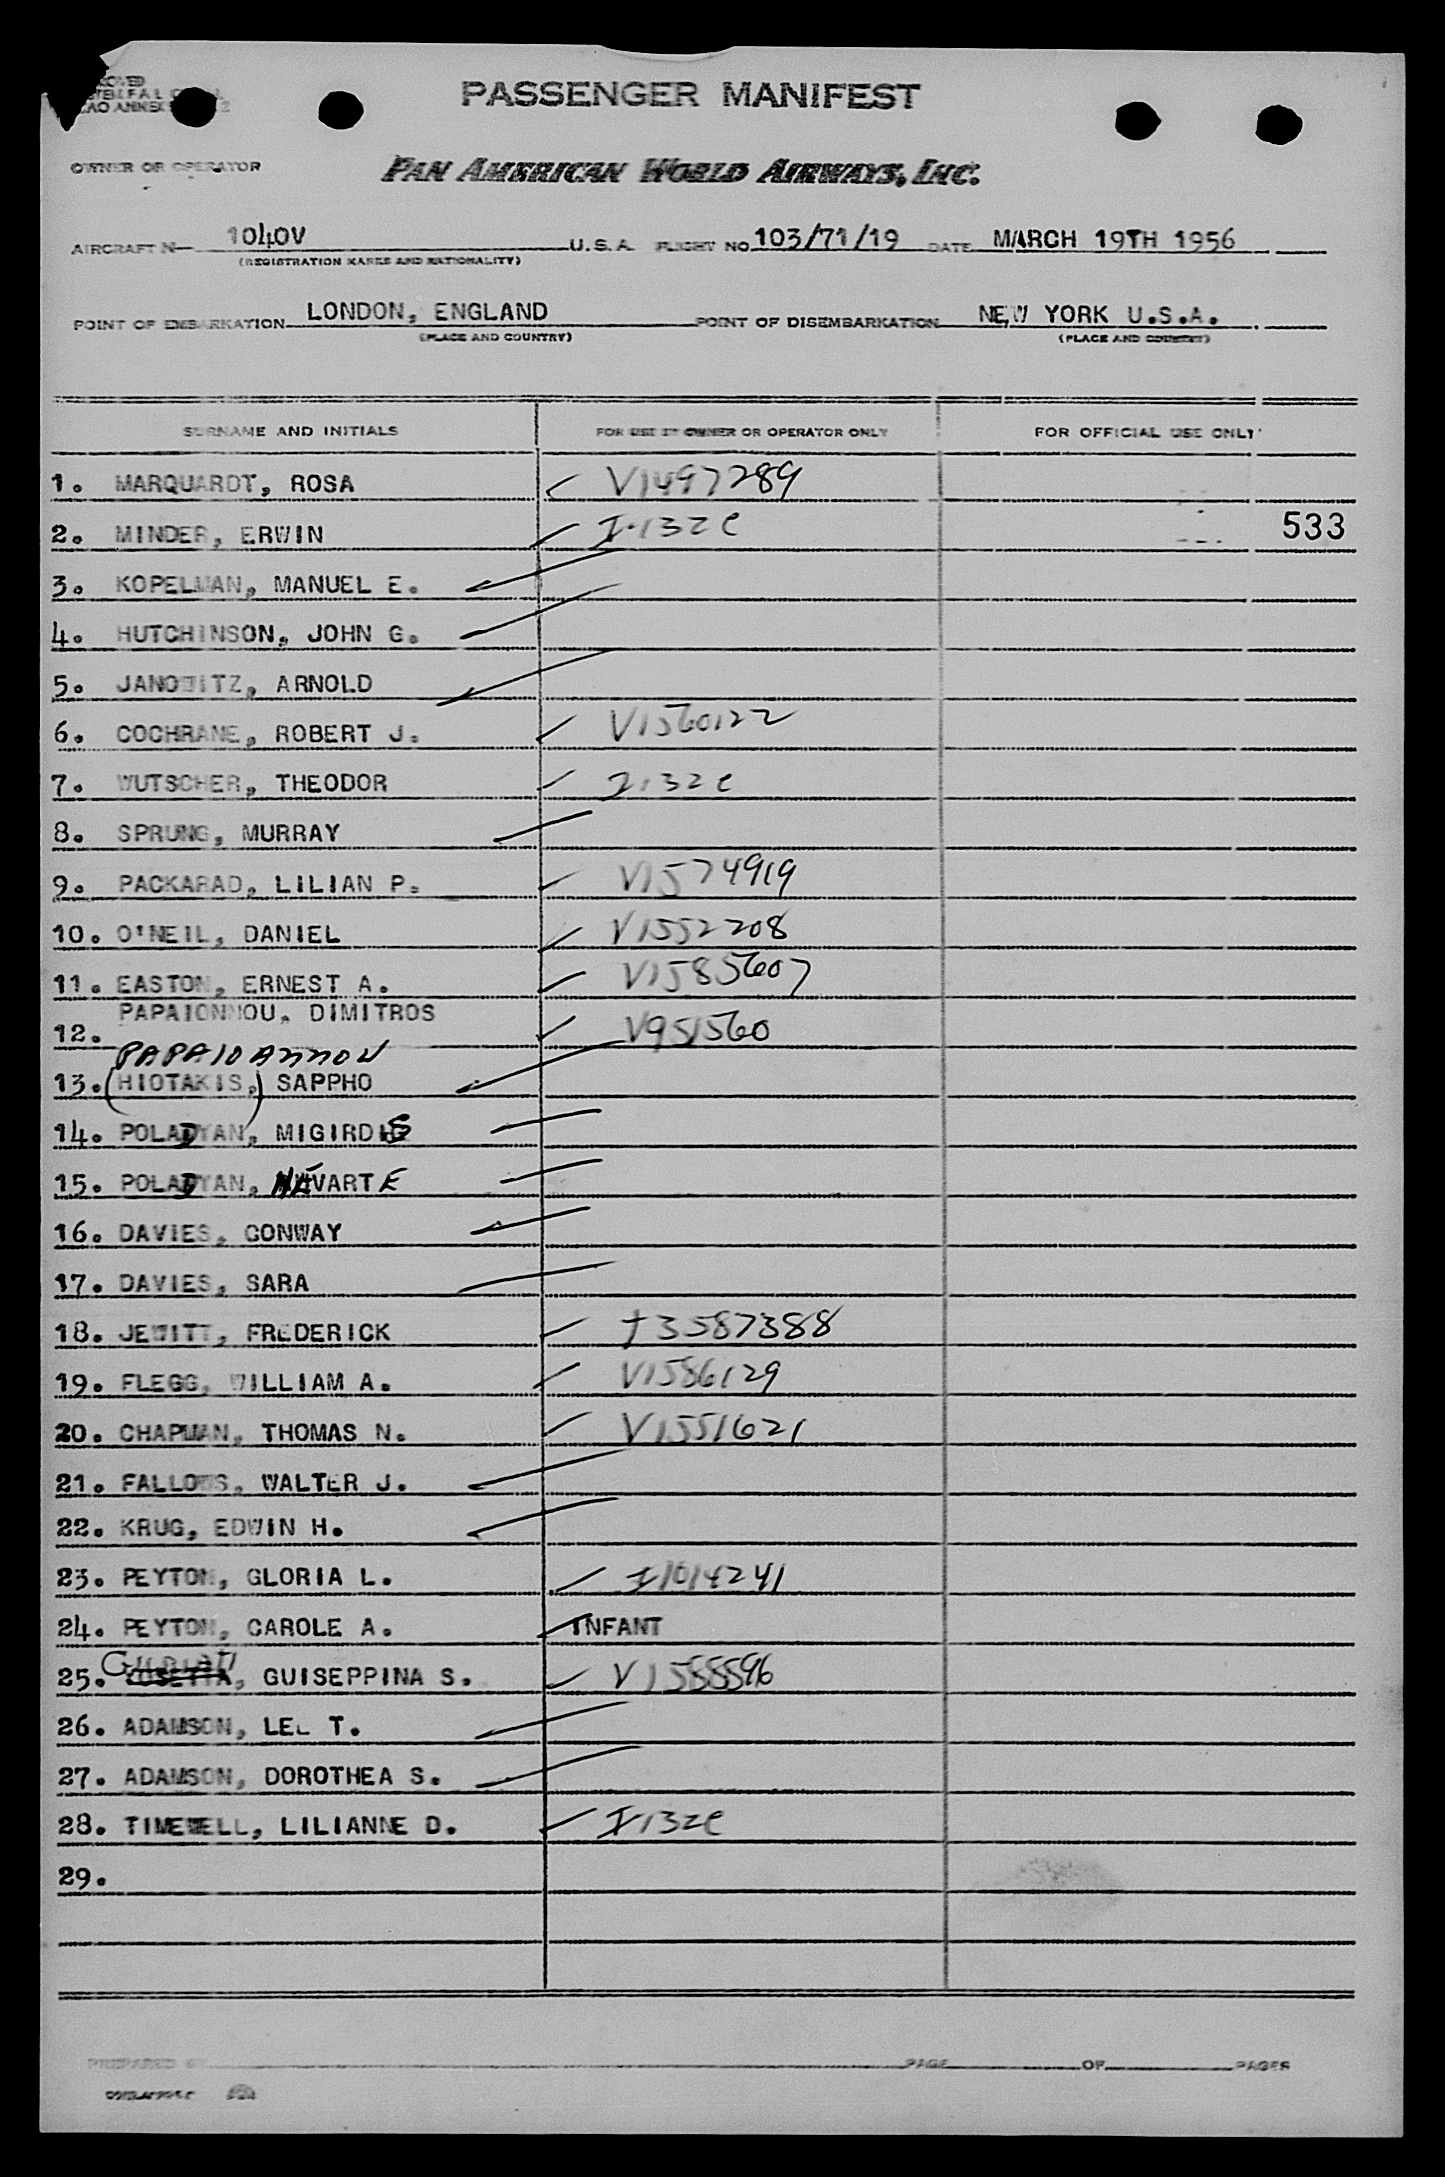 PASSENGER MANIFEST
OWNER OR OPERATOR PAN AMERICAN WORLD AIRWAYS, INC.
AIRCRAFT N 1040V U.S.A. FLIGHT NO. 103/71/19 DATE MARCH 19TH 1956
(REGISTRATION MARKS AND NATIONALITY)
POINT OF EMBARKATION LONDON, ENGLAND POINT OF DISEMBARKATION NEW YORK U.S.A.
(PLACE AND COUNTRY) (PLACE AND COUNTRY)
SURNAME AND INITIALS FOR USE BY OWNER OR OPERATOR ONLY FOR OFFICIAL USE ONLY
1. MARQUARDT, ROSA V1497289
2. MINDER, ERWIN I-132C 533
3. KOPELMAN, MANUEL E.
4. HUTCHINSON, JOHN G.
5. JANOWITZ, ARNOLD
6. COCHRANE, ROBERT J. V1560122
7. WUTSCHER, THEODOR I132C
8. SPRUNG, MURRAY
9. PACKARAD, LILIAN P. V1574919
10. O'NEIL, DANIEL V1552208
11. EASTON, ERNEST A. V1585607
12. PAPAIONNOU, DIMITROS V951560
PAPAIOANNOU
13. (HIOTAKIS,) SAPPHO
14. POLADYAN, MIGIRDIS
15. POLADYAN, NAVARTE
16. DAVIES, CONWAY
17. DAVIES, SARA
18. JEWITT, FREDERICK I3587388
19. FLEGG, WILLIAM A. V1586129
20. CHAPMAN, THOMAS N. V1551621
21. FALLOWS, WALTER J.
22. KRUG, EDWIN H.
23. PEYTON, GLORIA L. I1014241
24. PEYTON, CAROLE A. INFANT
25. GUISEPPINA S. V1588596
26. ADAMSON, LEE T.
27. ADAMSON, DOROTHEA S.
28. TIMEWELL, LILIANNE D. I132C
29.
PREPARED BY PAGE OF PAGES